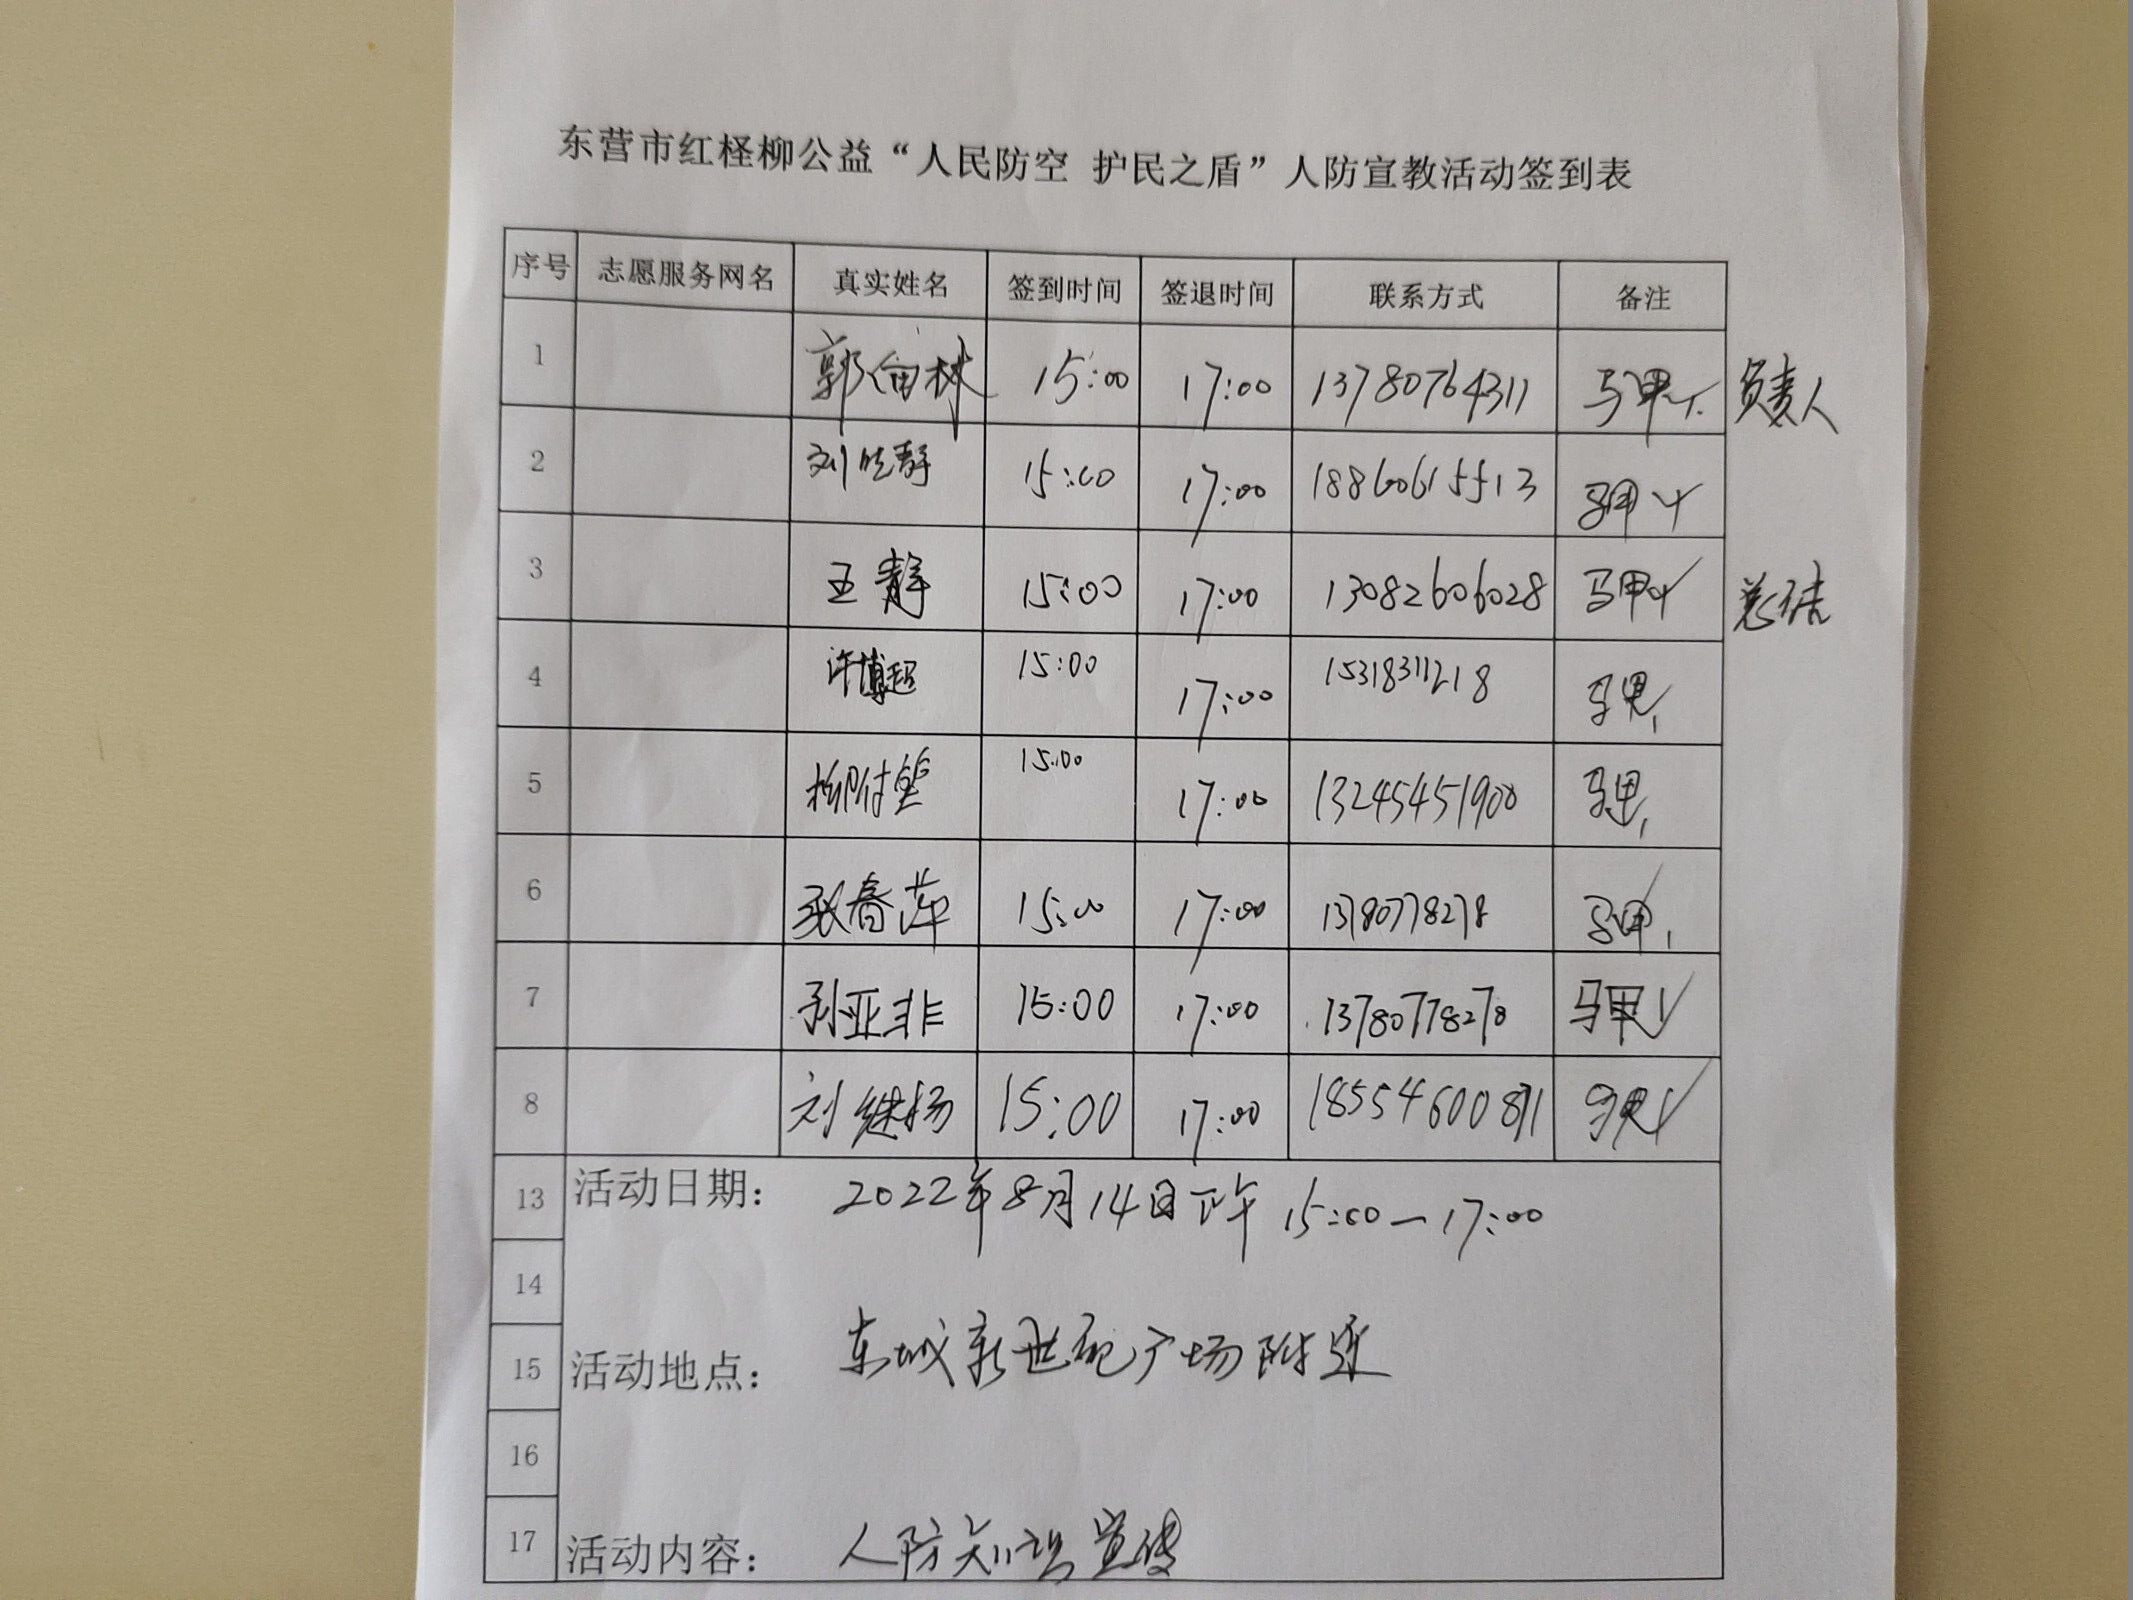 东营市红柽柳公益“人民防空 护民之盾”人防宣教活动签到表
序号 志愿服务网名 真实姓名 签到时间 签退时间 联系方式 备注
1 15:00 17:00 13780764311 马甲 负责人
2 15:00 17:00 18860615513 马甲
3 王静 15:00 17:00 13082606028 马甲 总结
4 许博超 15:00 17:00 15318311218 马甲
5 15:00 17:00 13245451900 马甲
6 15:00 17:00 13780778278 马甲
7 孙亚非 15:00 17:00 13780778278 马甲
8 刘继扬 15:00 17:00 马甲
13 活动日期： 2022年8月14日下午 15:00—17:00
14
15 活动地点： 东城新世纪广场附近
16
17 活动内容： 人防知识宣传